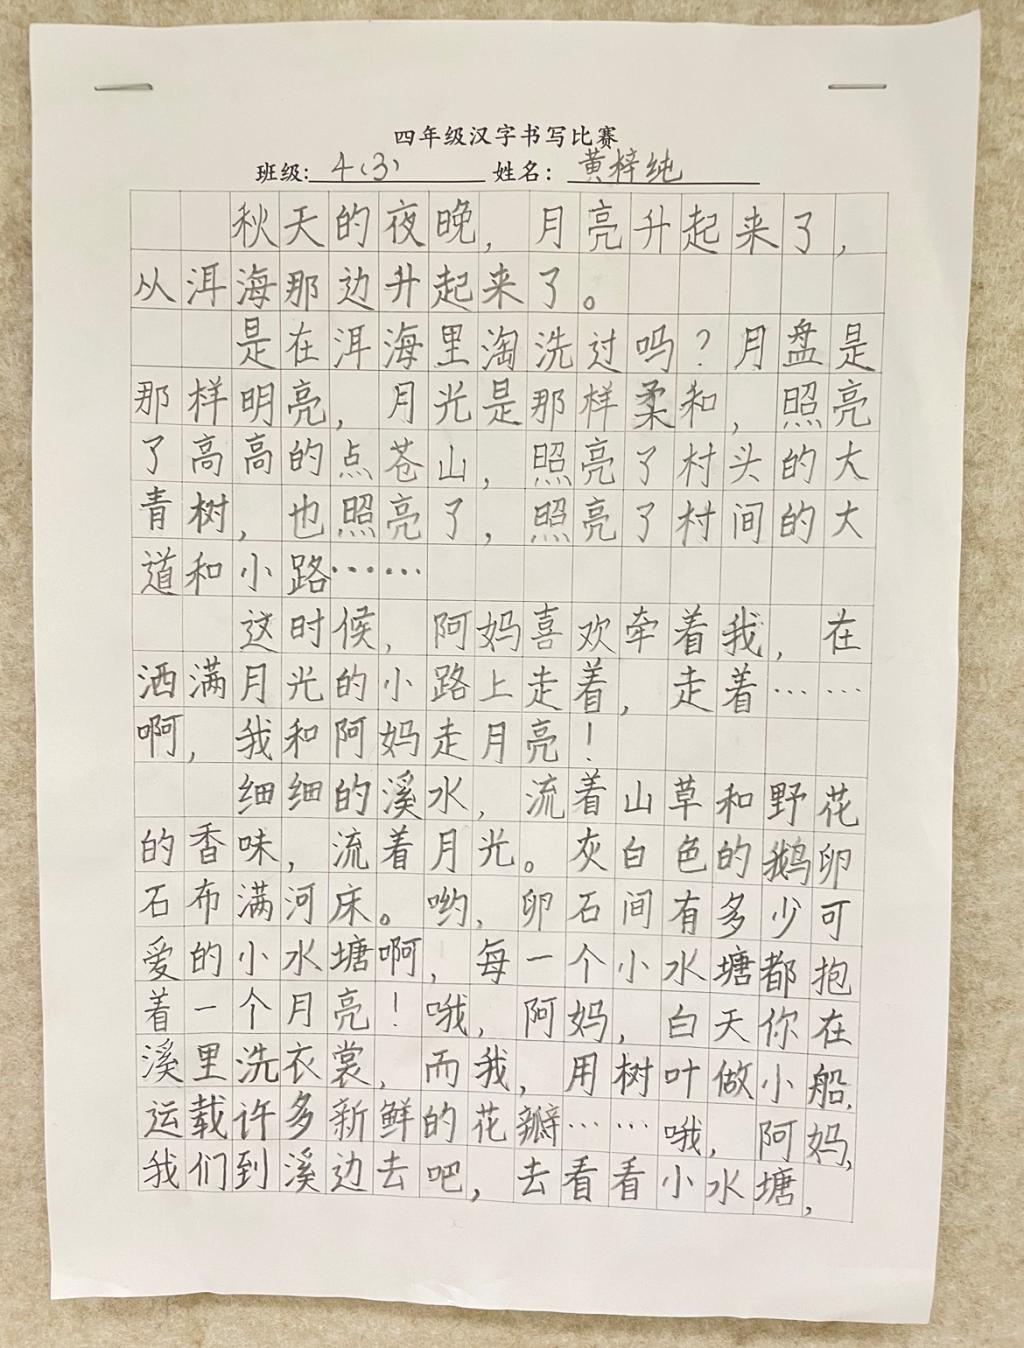 四年级汉字书写比赛
班级: 4(3) 姓名: 黄梓纯
秋天的夜晚，月亮升起来了，
从洱海那边升起来了。
是在洱海里淘洗过吗？月盘是
那样明亮，月光是那样柔和，照亮
了高高的点苍山，照亮了村头的大
青树，也照亮了，照亮了村间的大
道和小路……
这时候，阿妈喜欢牵着我，在
洒满月光的小路上走着，走着……
啊，我和阿妈走月亮！
细细的溪水，流着山草和野花
的香味，流着月光。灰白色的鹅卵
石布满河床。哟，卵石间有多少可
爱的小水塘啊，每一个小水塘都抱
着一个月亮！哦，阿妈，白天你在
溪里洗衣裳，而我，用树叶做小船，
运载许多新鲜的花瓣……哦，阿妈，
我们到溪边去吧，去看看小水塘，